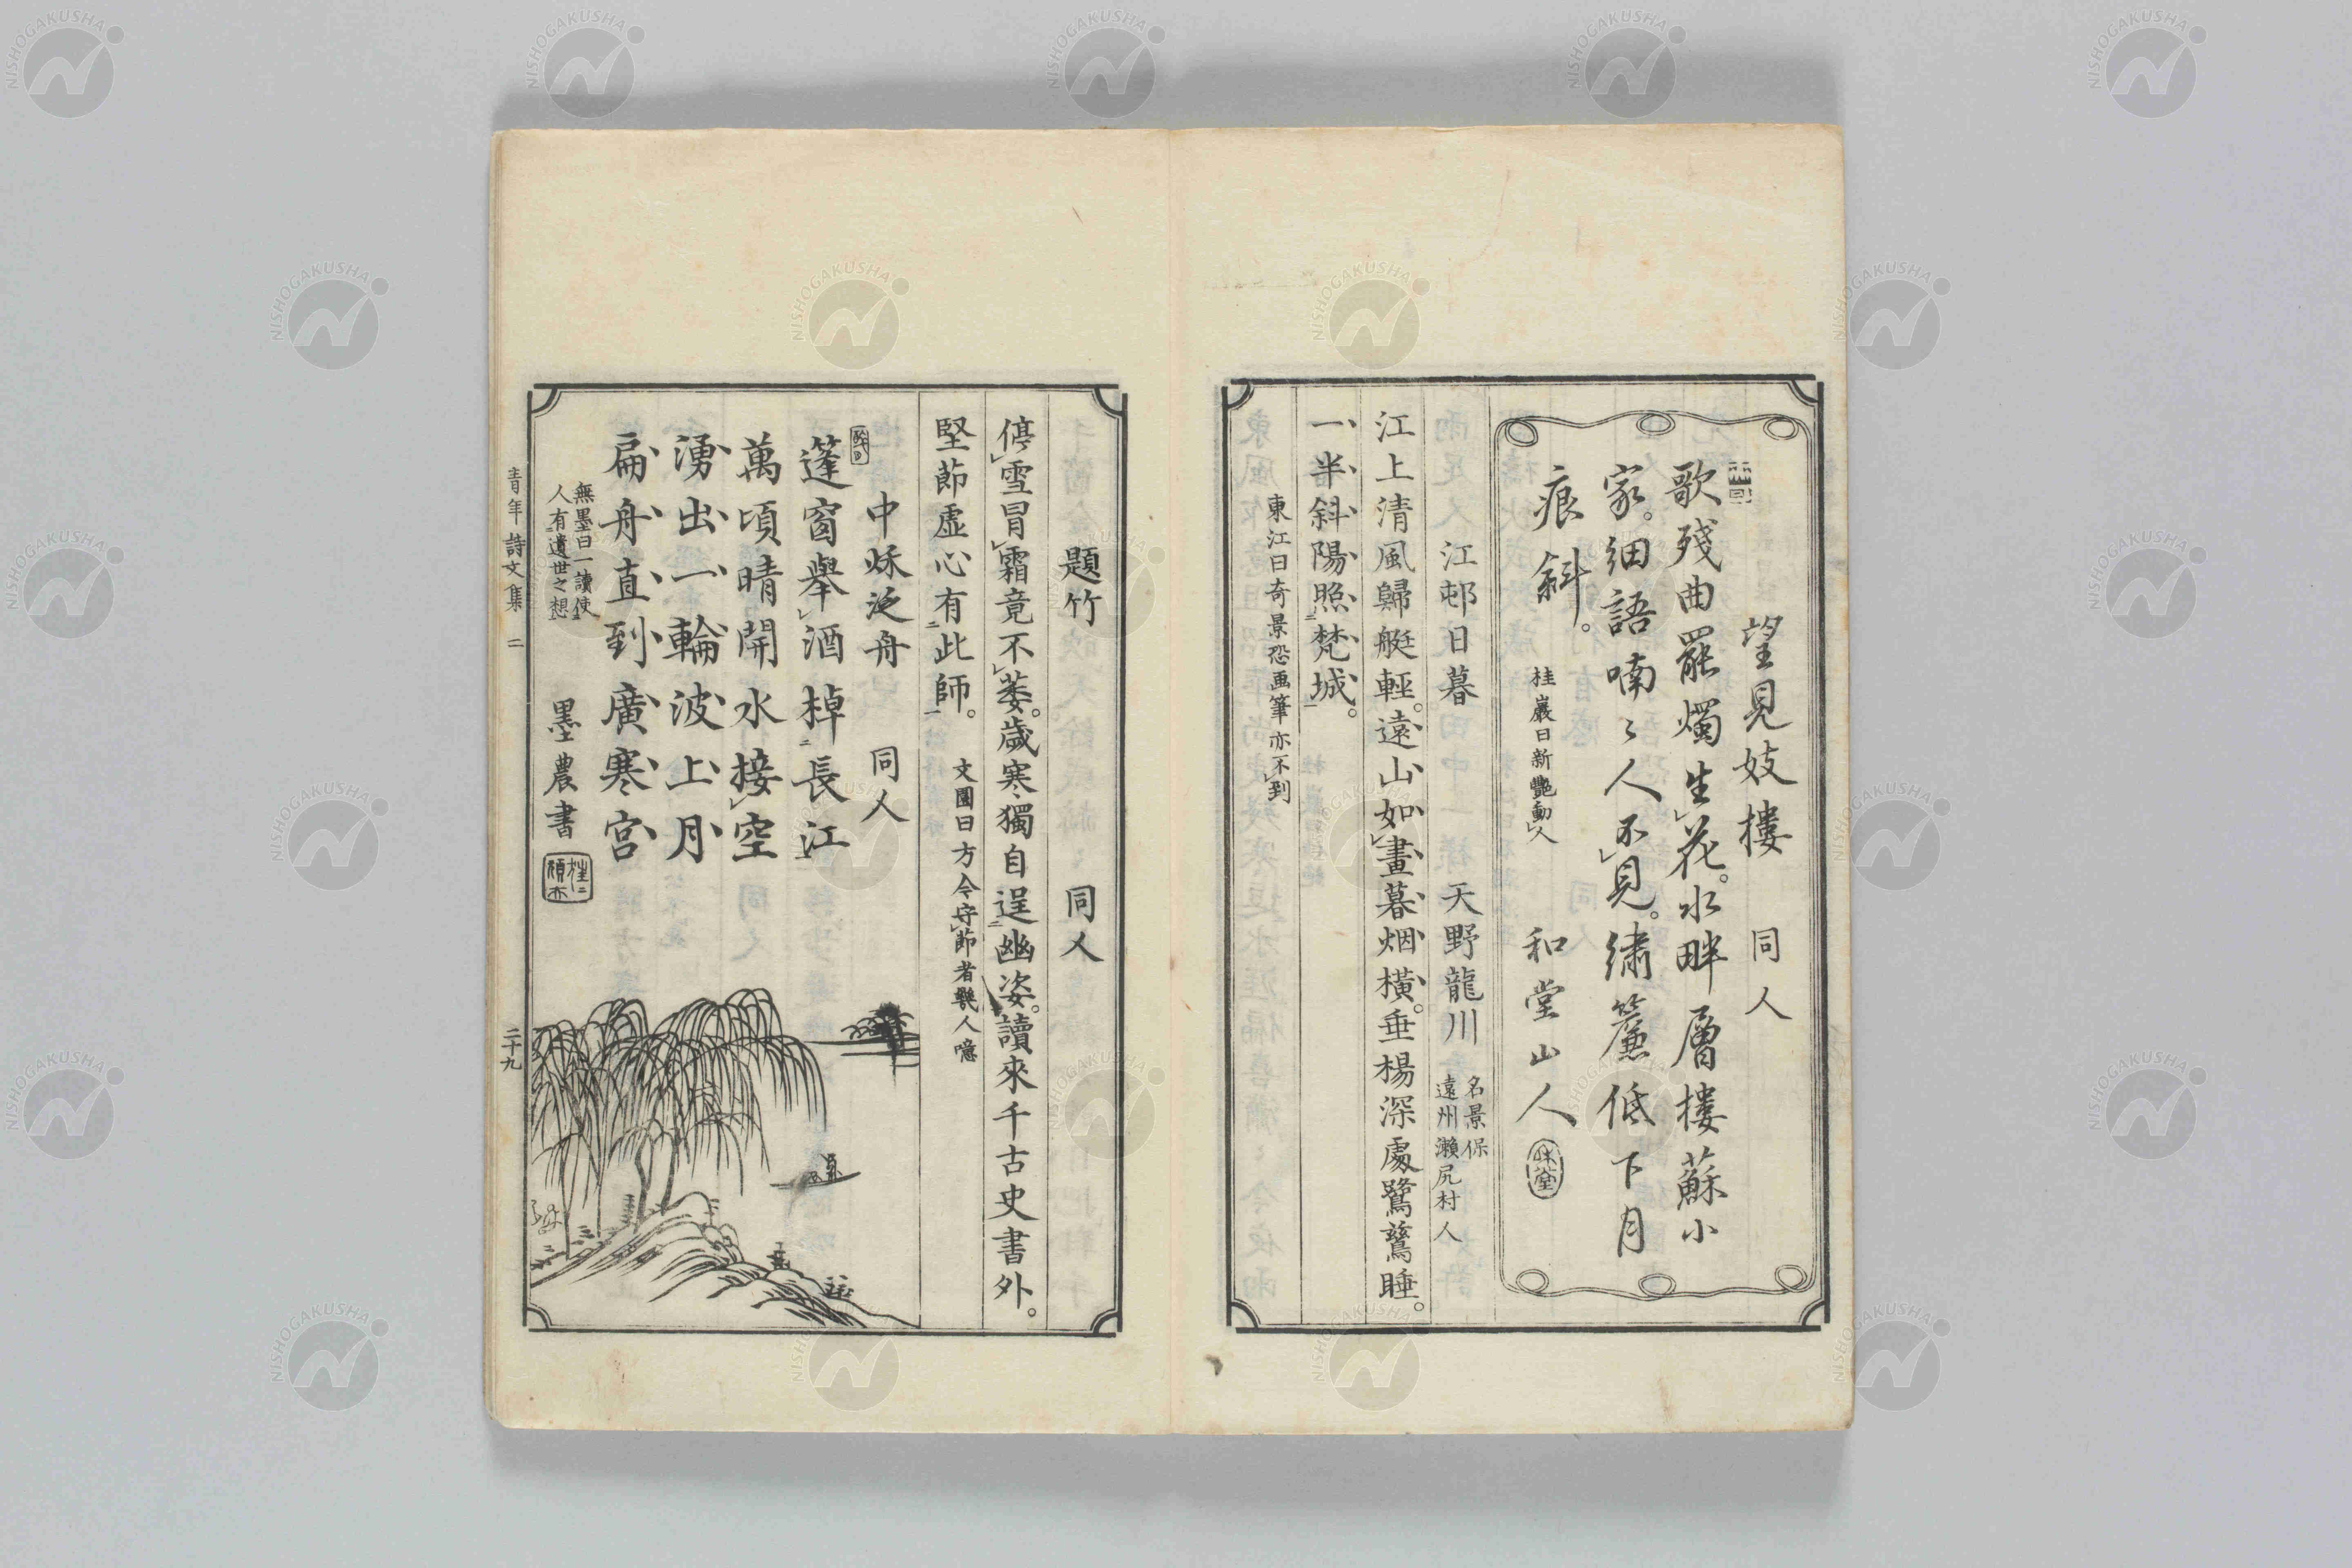 望見妓樓　同人
歌殘曲罷燭生花。水畔層樓蘇小
家。細語喃〻人不見。繡簾低下月
痕斜。
桂巖曰新艷動人
和堂山人
江邨日暮　天野龍川　名景保
遠州瀬尻村人
江上清風歸艇輕。遠山如畫暮烟橫。垂楊深處鷺鷥睡。
一半斜陽照梵城。
東江曰奇景恐画筆亦不到
題竹　同人
停雪冒霜竟不萎。歲寒獨自逞幽姿。讀來千古史書外。
堅節虛心有此師。
文園曰方今守節者幾人噫
中秌泛舟　同人
篷窗舉酒棹長江
萬頃晴開水接空
湧出一輪波上月
扁舟直到廣寒宮
無墨曰一讀使
人有遺世之想
墨農書
青年詩文集　二
二十九
NISHOGAKUSHA